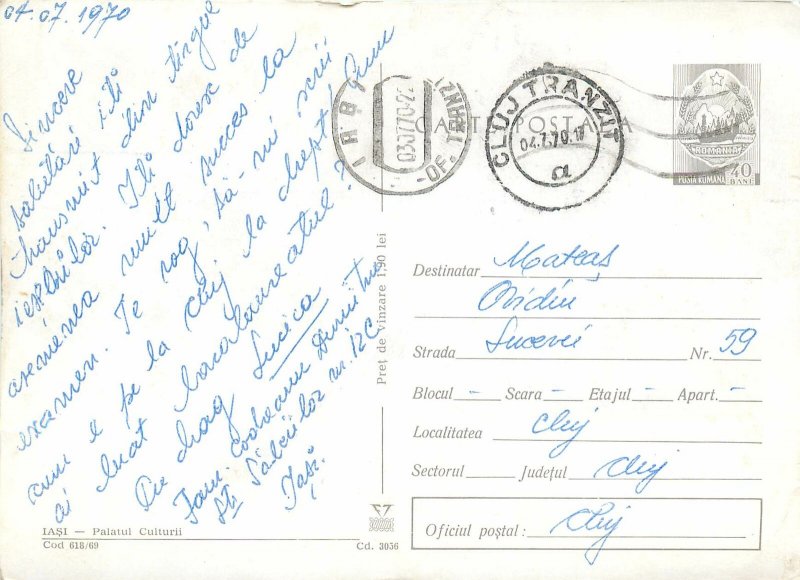 04.07.1970
Sincere
salutări iți
transmit din tîrgul
ieșenilor. Iți doresc de
asemenea mult succes la
examen. Te rog, să-mi scrii
cum e pe la Cluj, la drept! Cum
ai luat bacalaureatul?
Cu drag Lucica
Fam. Codreanu Dumitru
Str. Sălciilor nr. 12C
Iași.
IAȘI — Palatul Culturii
Cod 618/69
Cd. 3036
Preț de vinzare 1,90 lei
CARTE POSTALA
IAȘI
OF. TRANZ
CLUJ TRANZIT
04.7.70.
a
ROMANIA
POSTA ROMANA
40
BANI
Destinatar Mateaș
Ovidiu
Strada Sucevei Nr. 59
Blocul - Scara - Etajul - Apart. -
Localitatea Cluj
Sectorul Județul Cluj
Oficiul poștal: Cluj